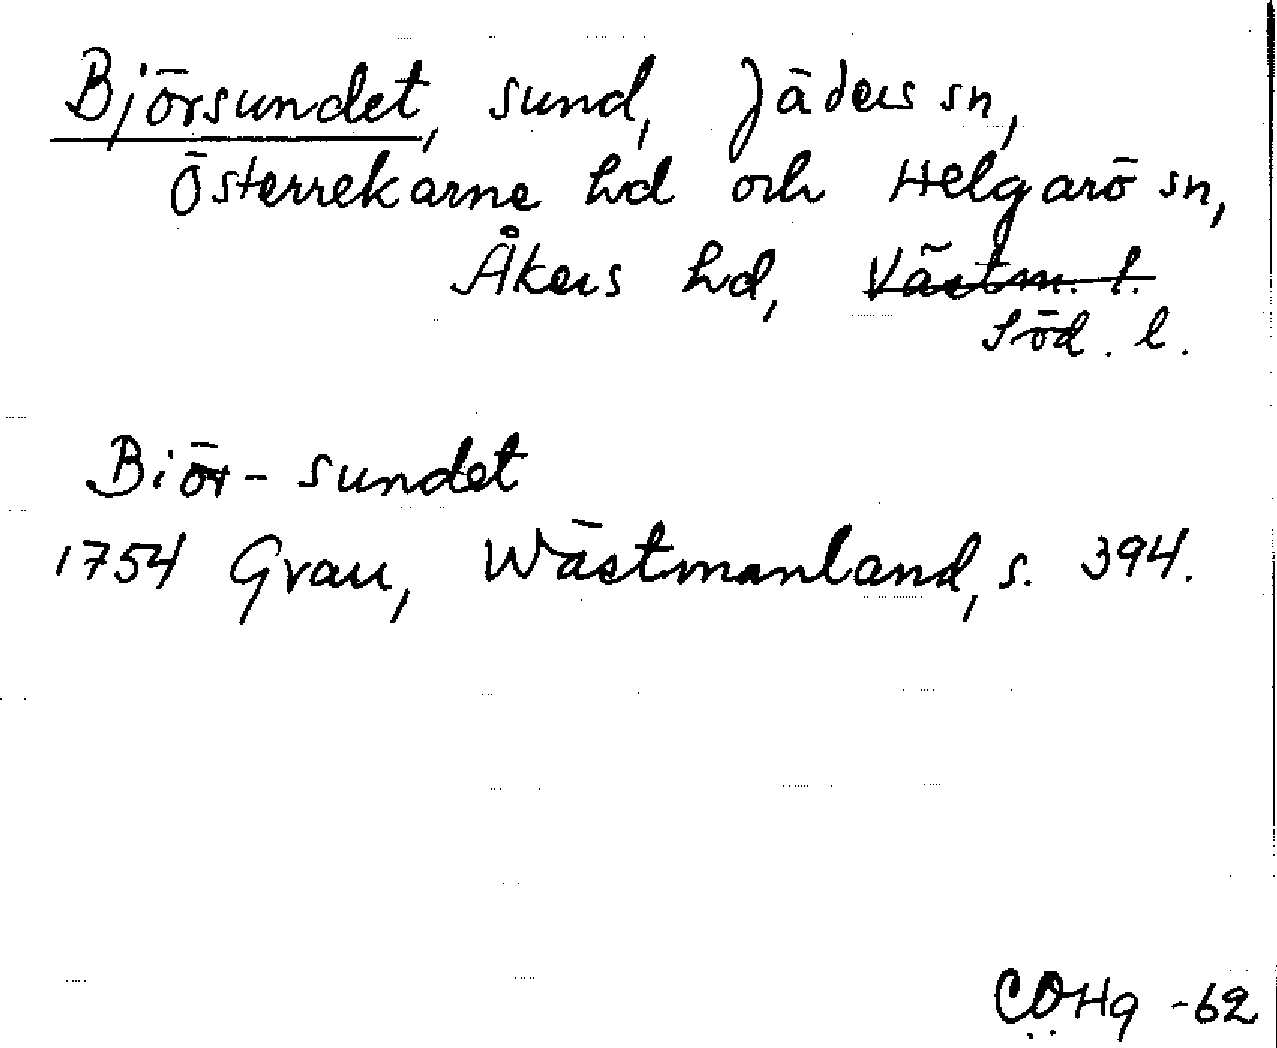 Björsundet, sund, Jäders sn,
Österrekarne hd och Helgarö sn,
Åkers hd, Västm. l.
Söd. l.
Biör-sundet
1754 Grau, Wästmanland, s. 394.
CÖHg -62